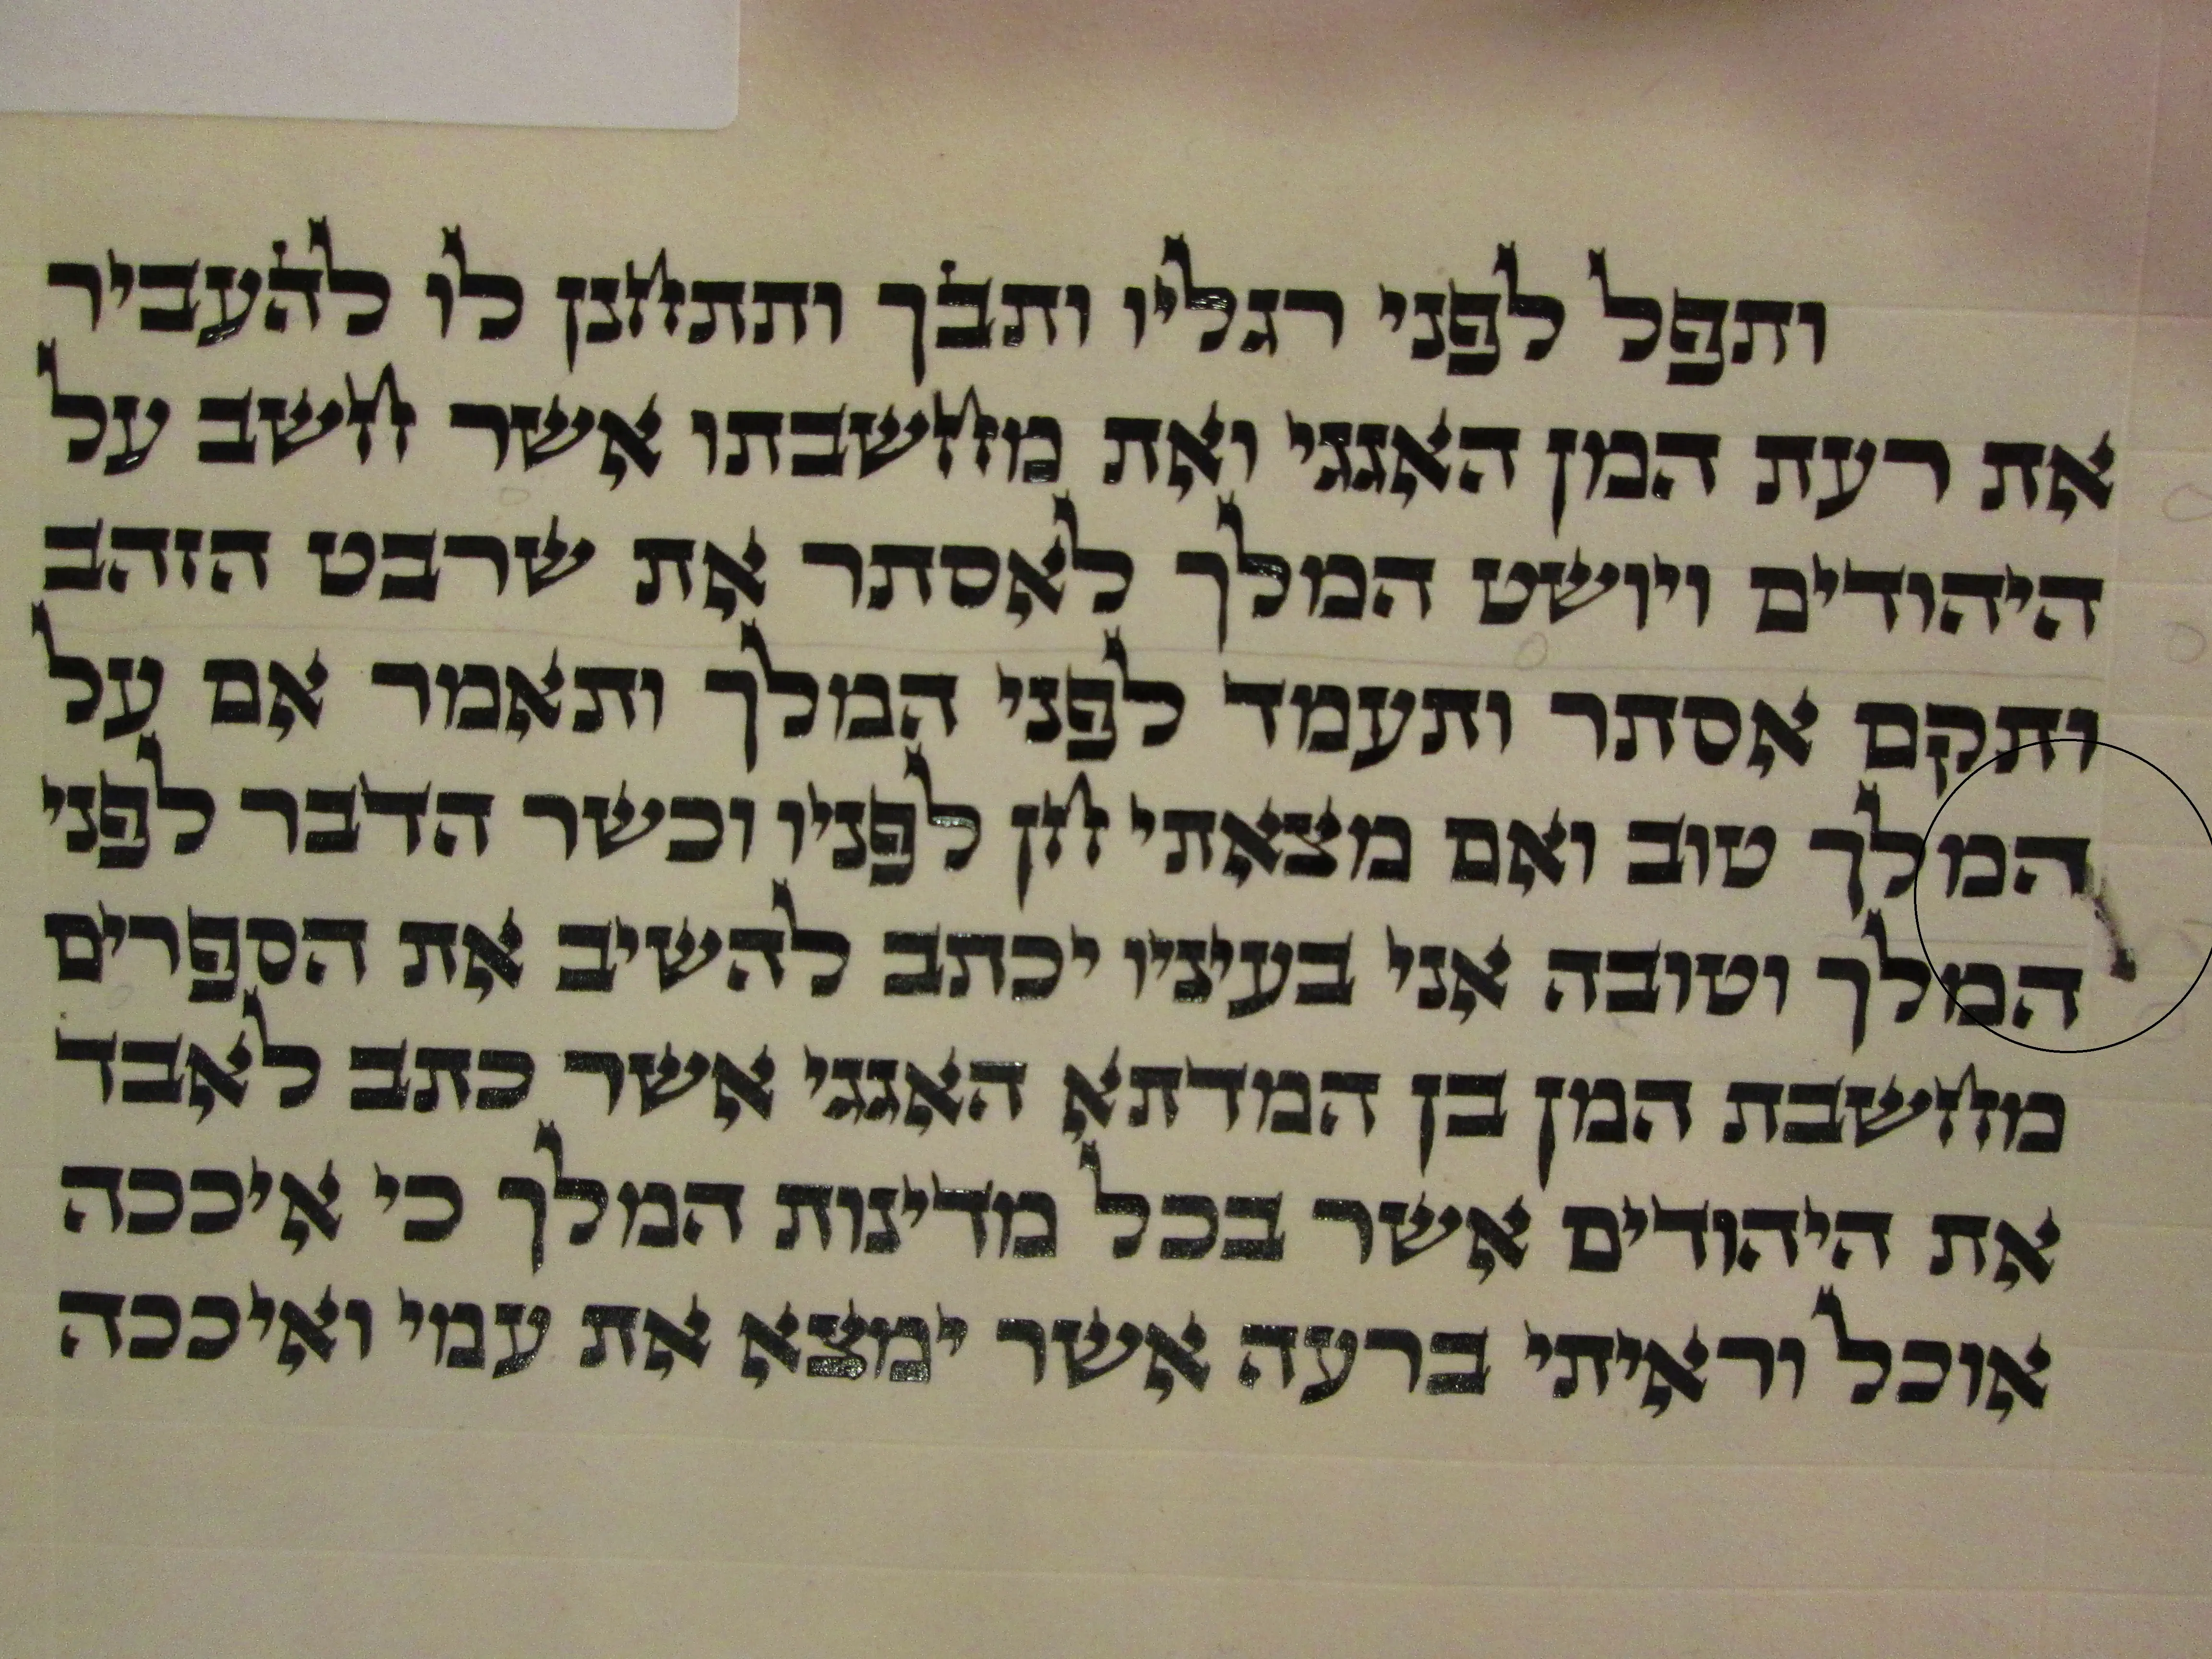 ותפל לפני רגליו ותבך ותתחנן לו להעביר
את רעת המן האגגי ואת מחשבתו אשר חשב על
היהודים ויושט המלך לאסתר את שרבט הזהב
ותקם אסתר ותעמד לפני המלך ותאמר אם על
המלך טוב ואם מצאתי חן לפניו וכשר הדבר לפני
המלך וטובה אני בעיניו יכתב להשיב את הספרים
מחשבת המן בן המדתא האגגי אשר כתב לאבד
את היהודים אשר בכל מדינות המלך כי איככה
אוכל וראיתי ברעה אשר ימצא את עמי ואיככה